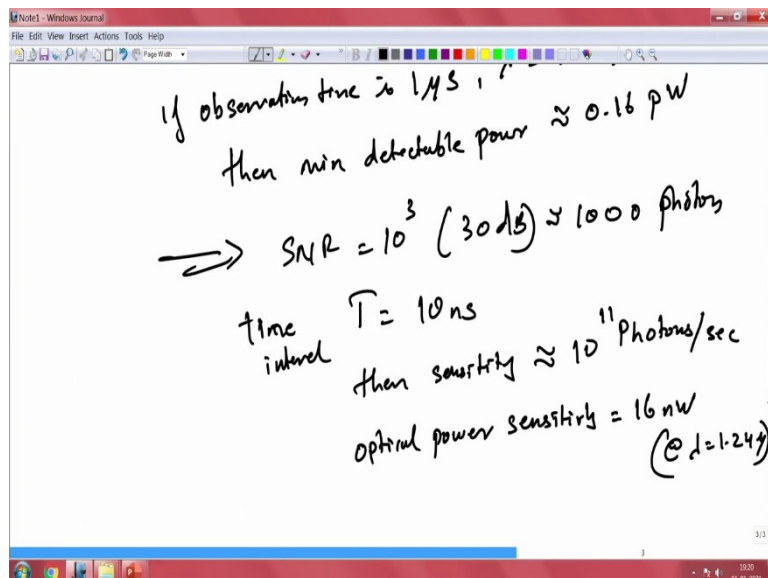 Note1 - Windows Journal
File Edit View Insert Actions Tools Help
Page Width
B I
if observation time is 1μs,
then min detectable power ≈ 0.16 pW
⇒ SNR = 10³ (30 dB) ≈ 1000 photons
time T = 10 ns
interval
then sensitivity ≈ 10¹¹ Photons/sec
optical power sensitivity = 16 nW
(@ λ=1.24μ)
3/3
3
19:20